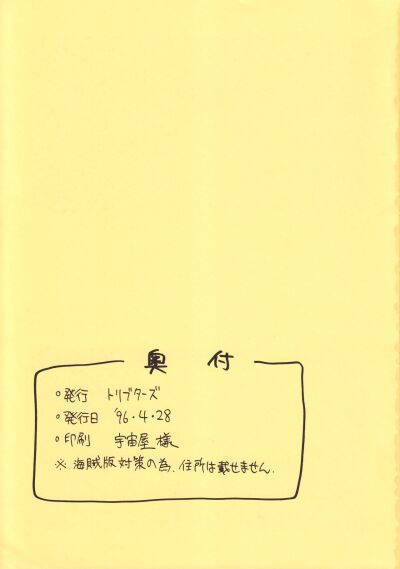 奥付
○発行 トリブターズ
○発行日 '96・4・28
○印刷 宇宙屋様
※ 海賊版対策の為、住所は載せません.